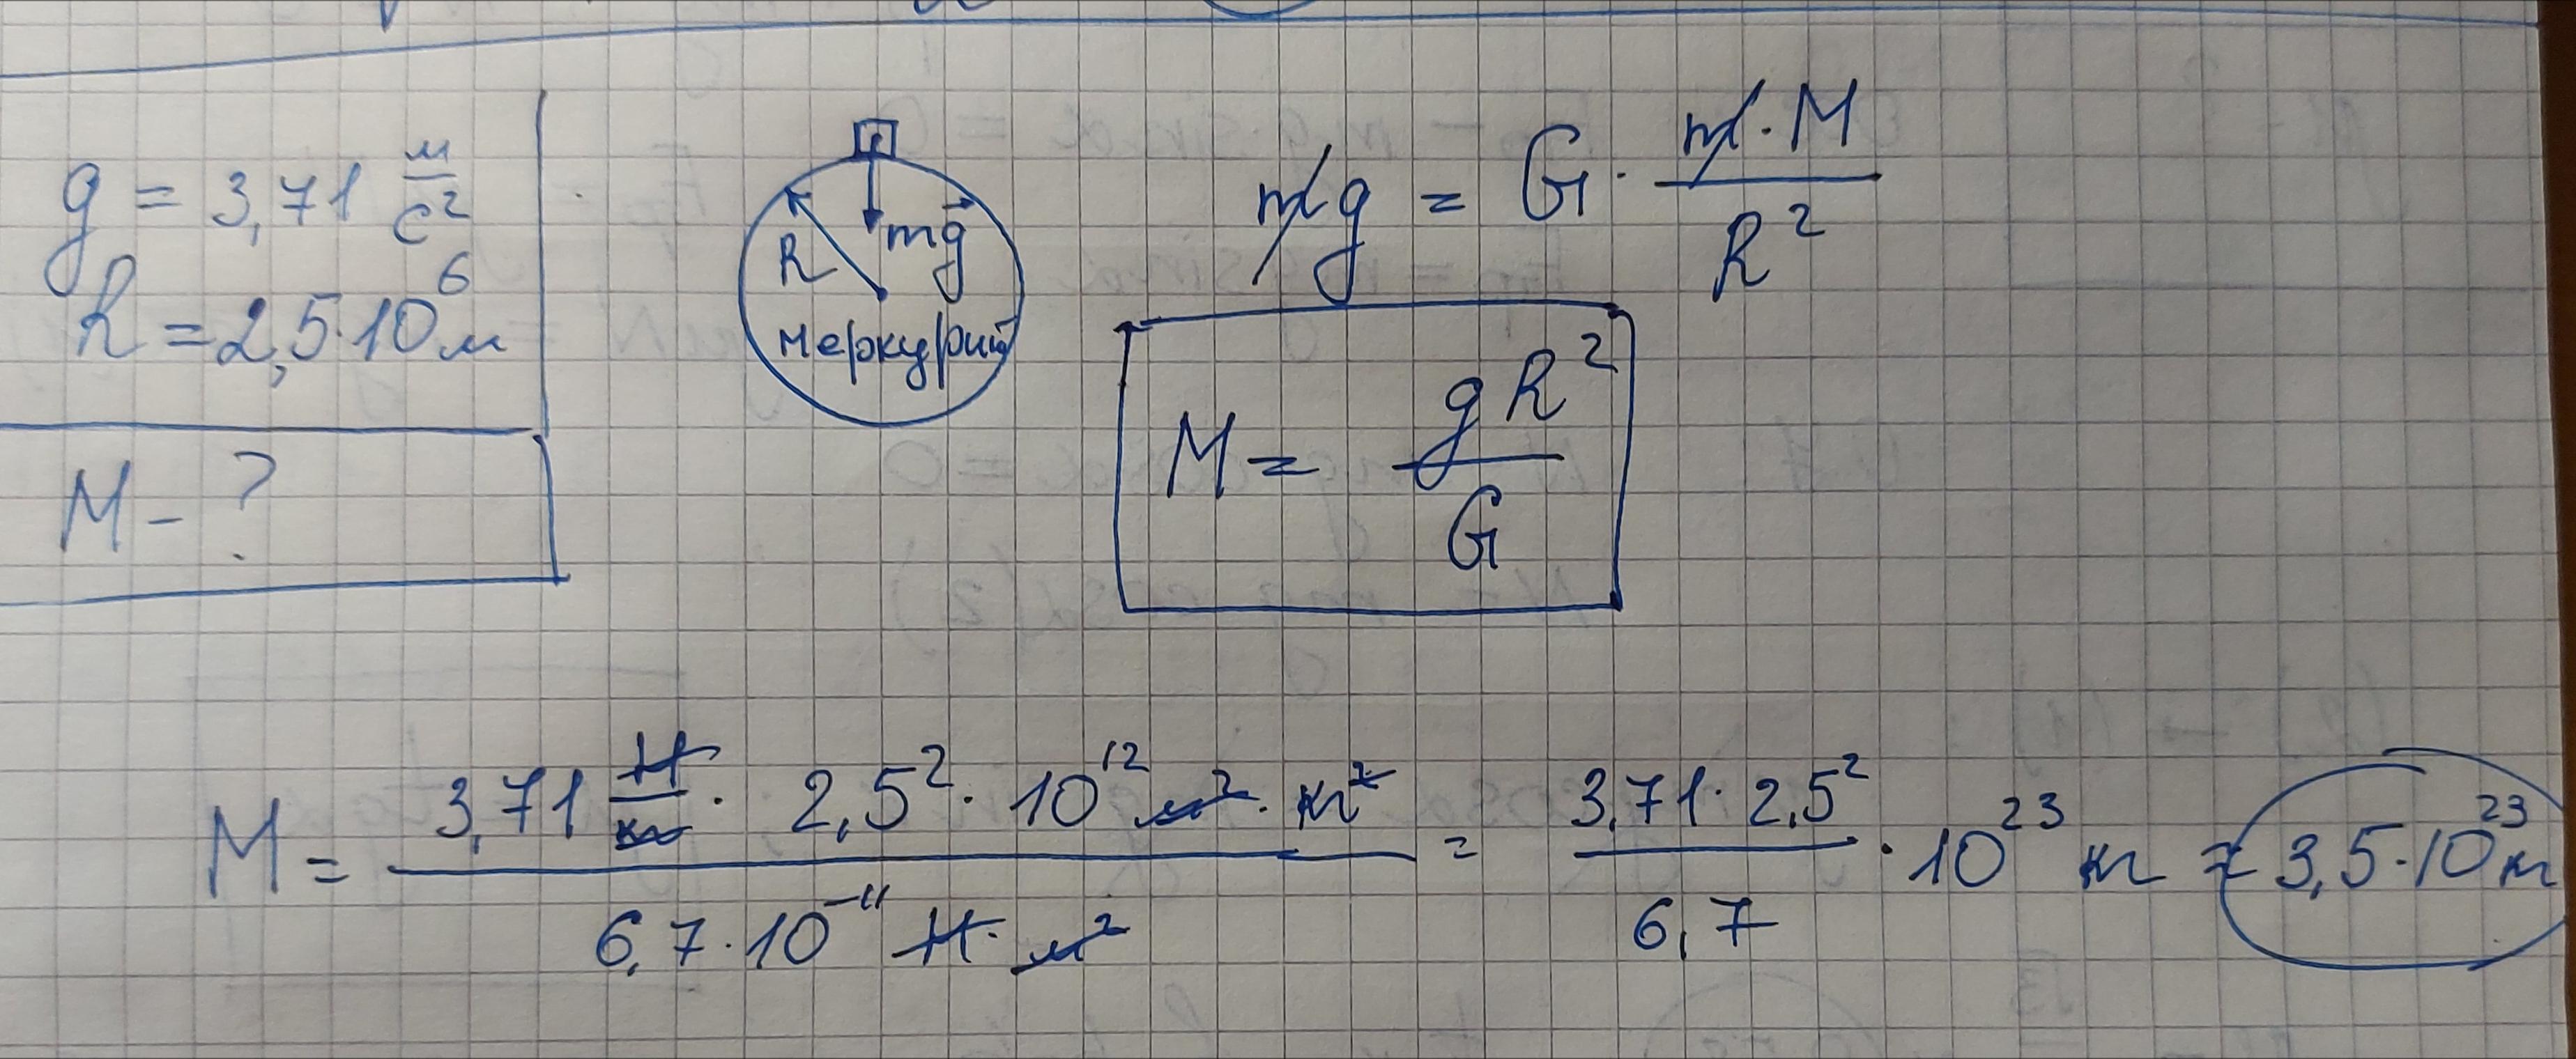 g = 3,71 м/с²
R = 2,5·10⁶ м
M - ?
R
mg⃗
Меркурий
mg = G · m·M / R²
M = gR² / G
M = 3,71 Н/кг · 2,5² · 10¹² м² · кг² / 6,7·10⁻¹¹ Н·м² = 3,71·2,5² / 6,7 · 10²³ кг = 3,5·10²³ кг